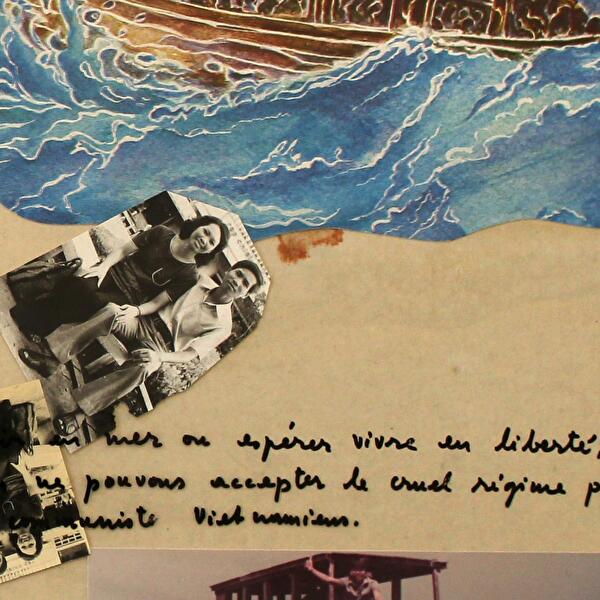 en mer ou espérer vivre en liberté,
ne pouvons accepter le cruel régime p
communiste Vietnamiens.